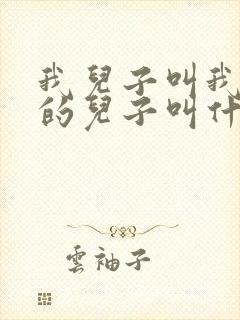 我兒子叫我
的兒子叫什
雲袖子